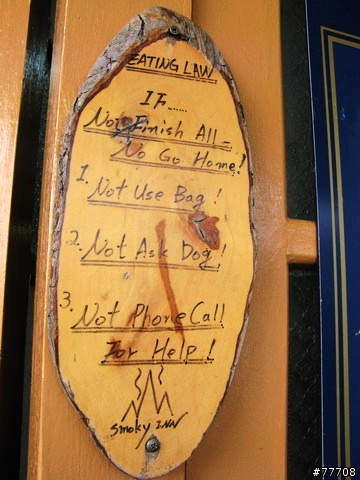 EATING LAW
IF......
Not Finish All-
No Go Home!
1. Not Use Bag!
2. Not Ask Dog!
3. Not Phone Call
For Help!
Smoky INN
#77708